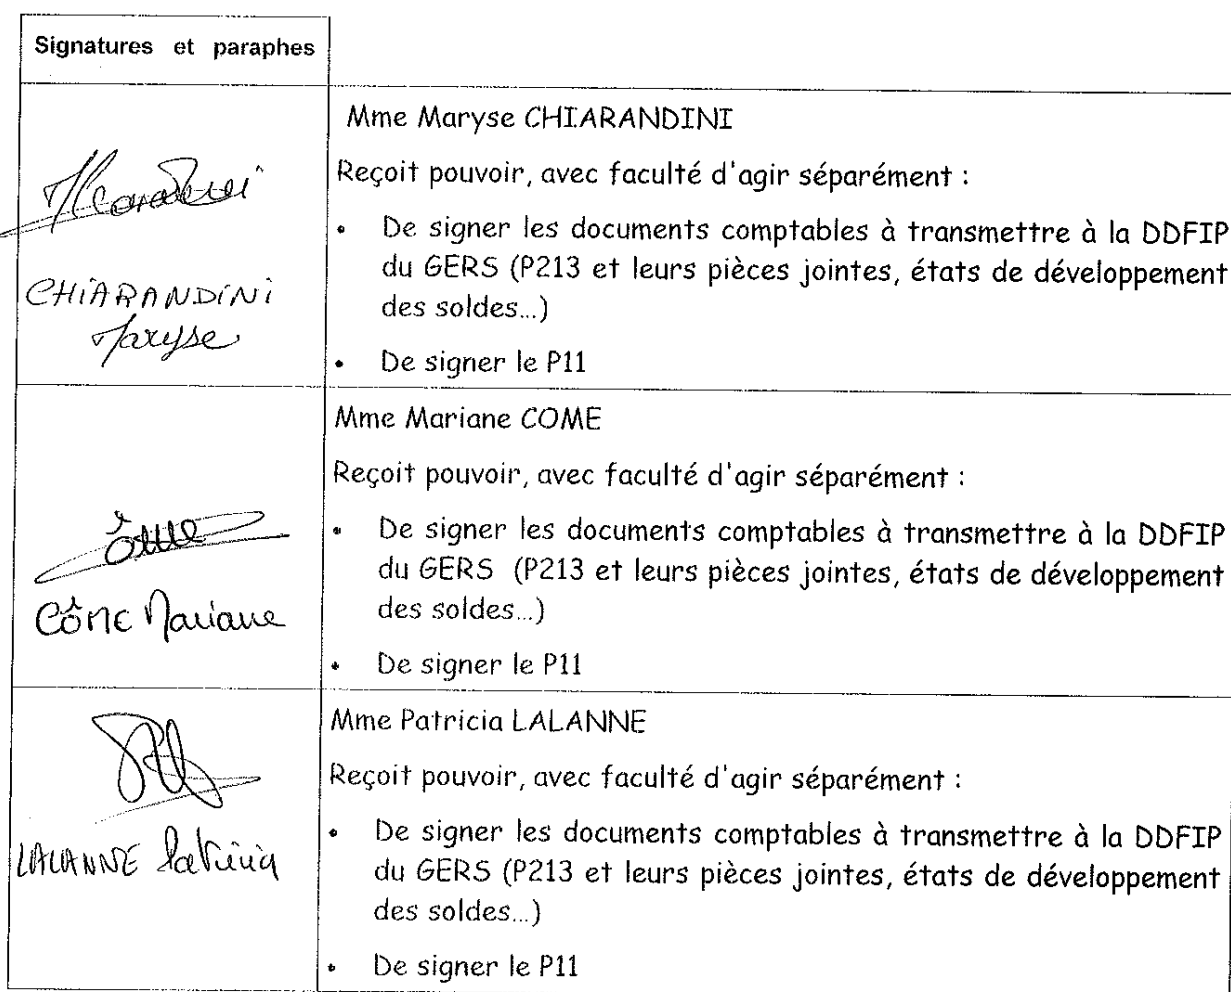 Signatures et paraphes
CHIARANDINI
Maryse
Mme Maryse CHIARANDINI
Reçoit pouvoir, avec faculté d'agir séparément :
• De signer les documents comptables à transmettre à la DDFIP
du GERS (P213 et leurs pièces jointes, états de développement
des soldes...)
• De signer le P11
Côme Mariane
Mme Mariane COME
Reçoit pouvoir, avec faculté d'agir séparément :
• De signer les documents comptables à transmettre à la DDFIP
du GERS (P213 et leurs pièces jointes, états de développement
des soldes...)
• De signer le P11
LALANNE Patricia
Mme Patricia LALANNE
Reçoit pouvoir, avec faculté d'agir séparément :
• De signer les documents comptables à transmettre à la DDFIP
du GERS (P213 et leurs pièces jointes, états de développement
des soldes...)
• De signer le P11